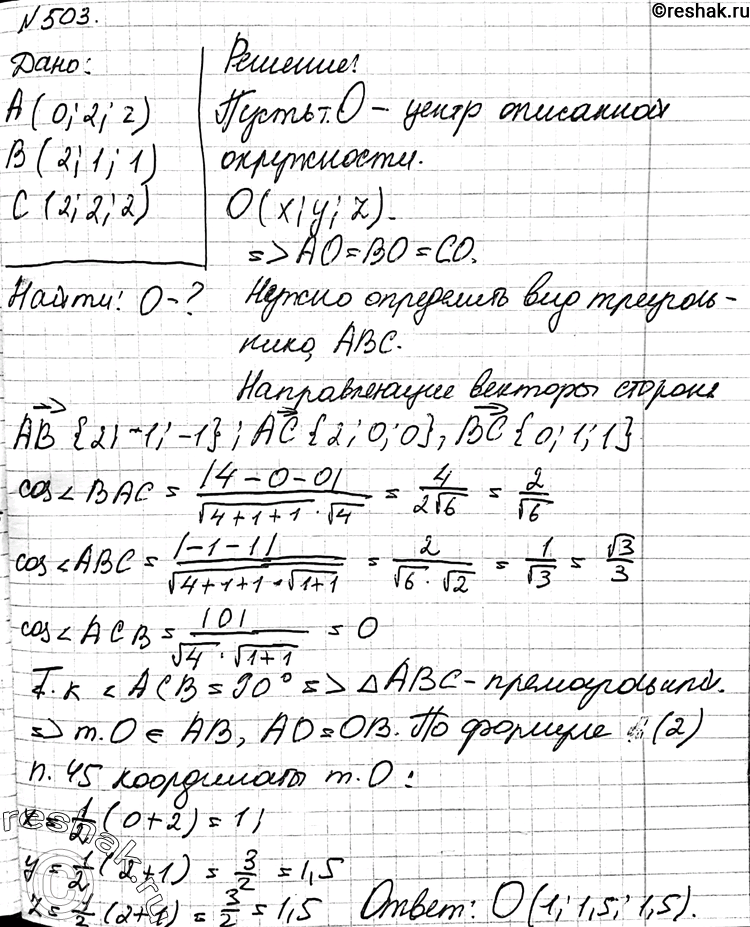 ©reshak.ru
№503.
Дано:
A(0; 2; 2)
B(2; 1; 1)
C(2; 2; 2)
Найти: O-?
Решение:
Пусть т. O – центр описанной
окружности.
O(x; y; z).
=> AO=BO=CO.
Нужно определить вид треуголь-
ника ABC.
Направляющие векторы сторон
AB {2; -1; -1}; AC {2; 0; 0}, BC {0; 1; 1}
cos∠BAC = |4-0-0| / (√(4+1+1) · √4) = 4/(2√6) = 2/√6
cos∠ABC = |-1-1| / (√(4+1+1) · √(1+1)) = 2/(√6 · √2) = 1/√3 = √3/3
cos∠ACB = |0| / (√4 · √(1+1)) = 0
Т.к ∠ACB = 90° => △ABC - прямоугольный.
=> т.O ∈ AB, AO=OB. По формуле (2)
п. 45 координаты т. O:
x = 1/2 (0+2) = 1;
y = 1/2 (2+1) = 3/2 = 1,5
z = 1/2 (2+1) = 3/2 = 1,5 Ответ: O(1; 1,5; 1,5).
reshak.ru
©